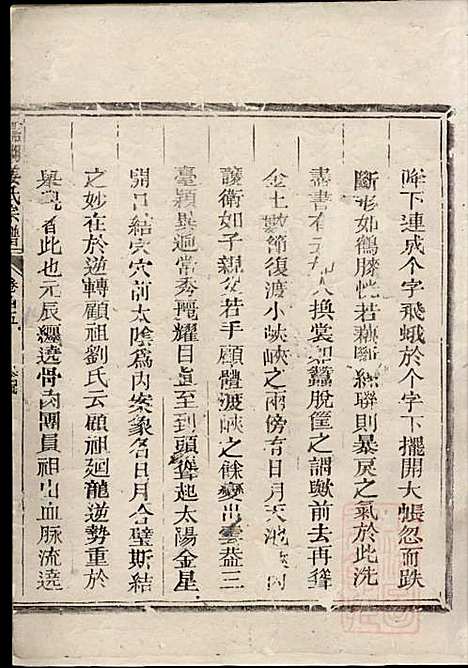 降下連成个字飛蛾於个字下擺開大帳忽而跌
斷形如鶴膝恍若藕斷絲聯則暴戾之氣於此洗
盡書有云如人換裳如蠶脫筐之謂歟前去再聳
金土數節復渡小峽峽之兩傍有日月天池
護衛如子親父若手顧體渡峽之餘變出雲益三
臺穎異迥常秀麗耀日直至到頭聳起太陽金星
開口結穴穴前太陰為內案象名日月合璧斯結
之妙在於逆轉顧祖劉氏云顧祖廻龍逆勢重於
此也元辰纏遶骨肉團員祖山血脉流遶
姜氏宗譜